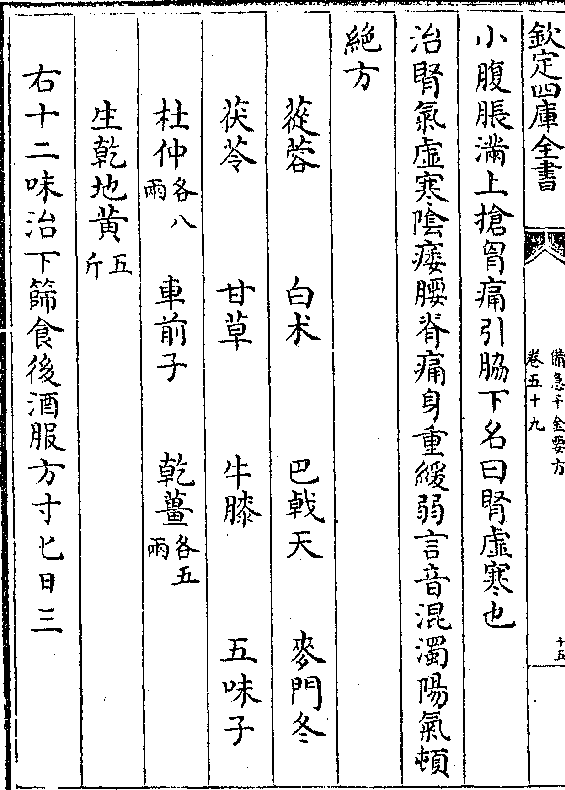 欽定四庫全書
備急千金要方
卷五十九
十五
小腹脹滿上搶胷痛引脇下名曰腎虛寒也
治腎氣虛寒陰痿腰脊痛身重緩弱言音混濁陽氣頓
絶方
蓯蓉 白术 巴戟天 麥門冬
茯苓 甘草 牛膝 五味子
杜仲各八兩 車前子 乾薑各五兩
生乾地黃五斤
右十二味治下篩食後酒服方寸匕日三